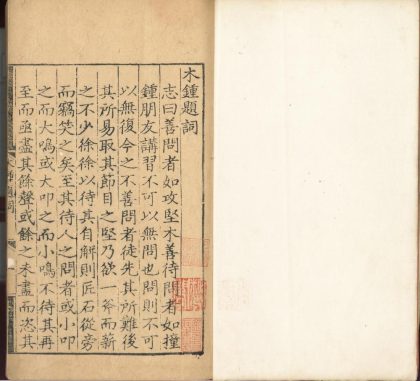 木鍾題詞
志曰善問者如攻堅木善待問者如撞
鍾朋友講習不可以無問也問則不可
以無復今之不善問者徒先其所難後
其所易取其節目之堅乃欲一斧而薪
之不少徐徐以待其自解則匠石從旁
而竊笑之矣至其待人之問者或小叩
之而大鳴或大叩之而小鳴不待其再
至而亟盡其餘聲或餘之未盡而恣其